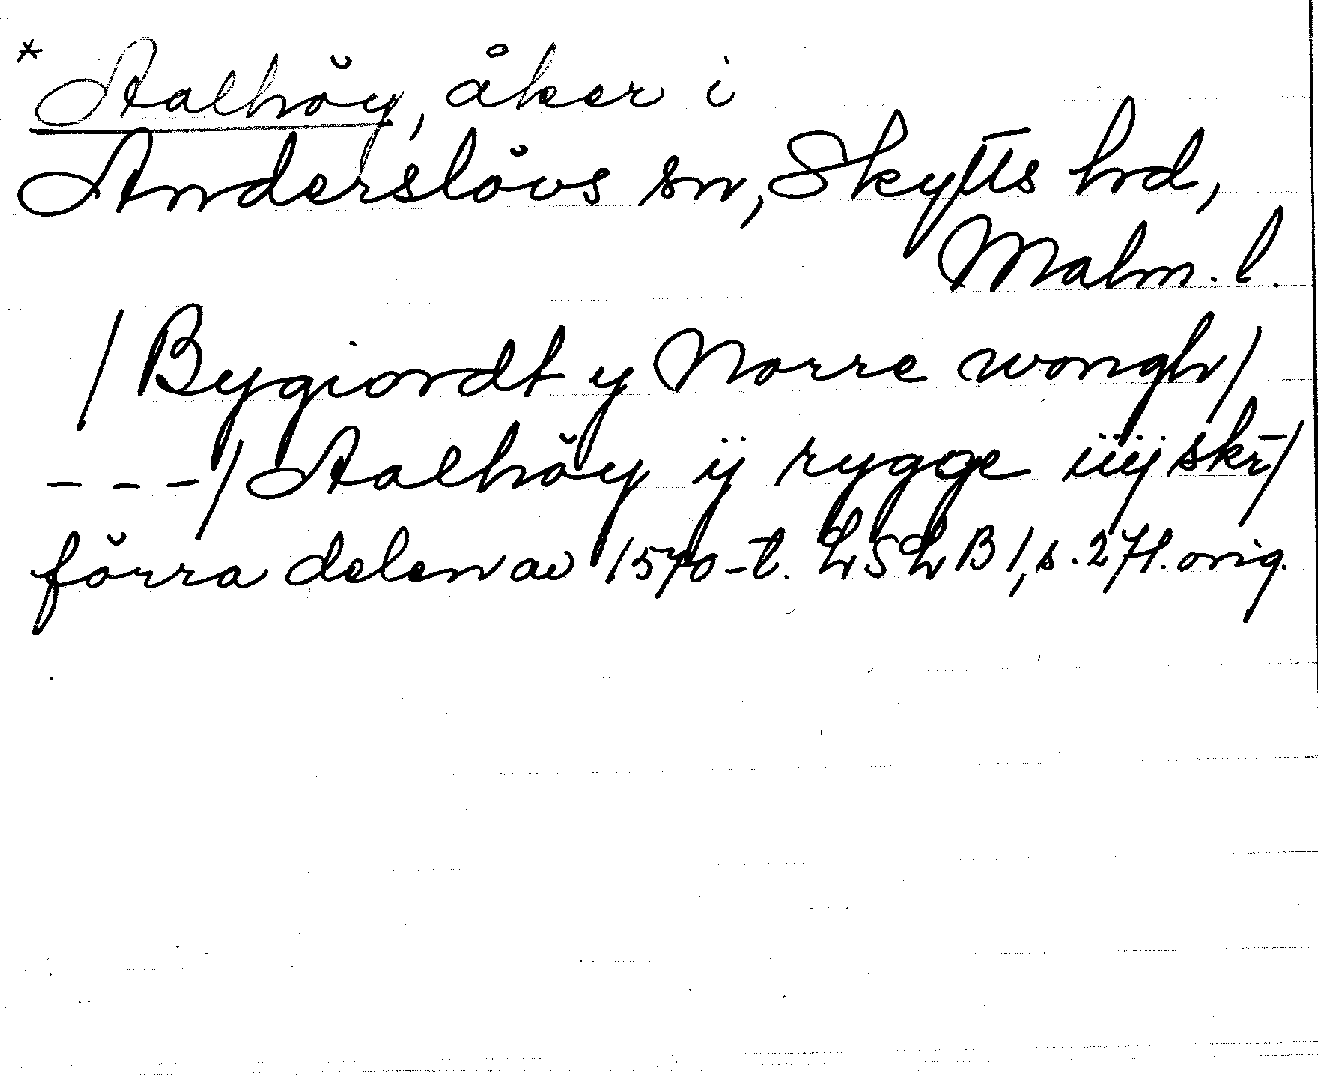 *Aalhöy, åker i
Anderslövs sn, Skytts hd,
Malm. l.
/Bygiordt y Norre wongh/
---/Aalhöy ij rygge iiij skr̄/
förra delen av 1570-t. LSLB1, s. 271. orig.